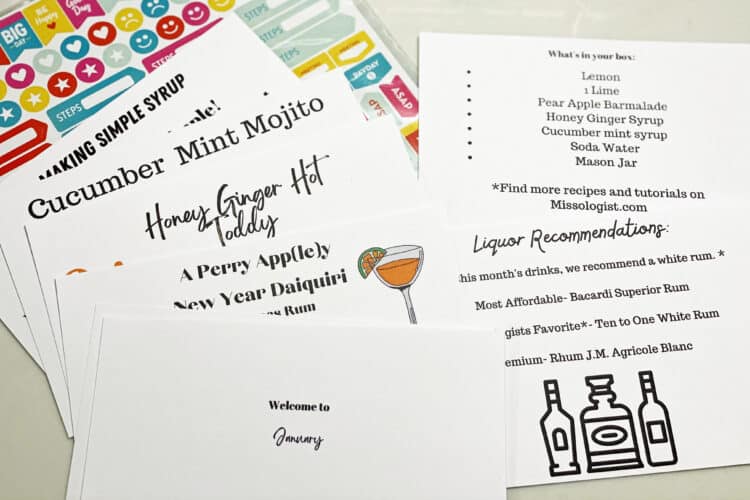 BIG
DAY
BE
Happy
Good
Day
STEPS
STEPS
STEPS
PAYDAY
ASAP
ASAP
MAKING SIMPLE SYRUP
Cucumber Mint Mojito
Honey Ginger Hot
Toddy
A Perry App(le)y
New Year Daiquiri
Rum
Welcome to
January
What's in your box:
Lemon
1 Lime
Pear Apple Barmalade
Honey Ginger Syrup
Cucumber mint syrup
Soda Water
Mason Jar
*Find more recipes and tutorials on
Missologist.com
Liquor Recommendations:
this month's drinks, we recommend a white rum. *
Most Affordable- Bacardi Superior Rum
gists Favorite*- Ten to One White Rum
emium- Rhum J.M. Agricole Blanc